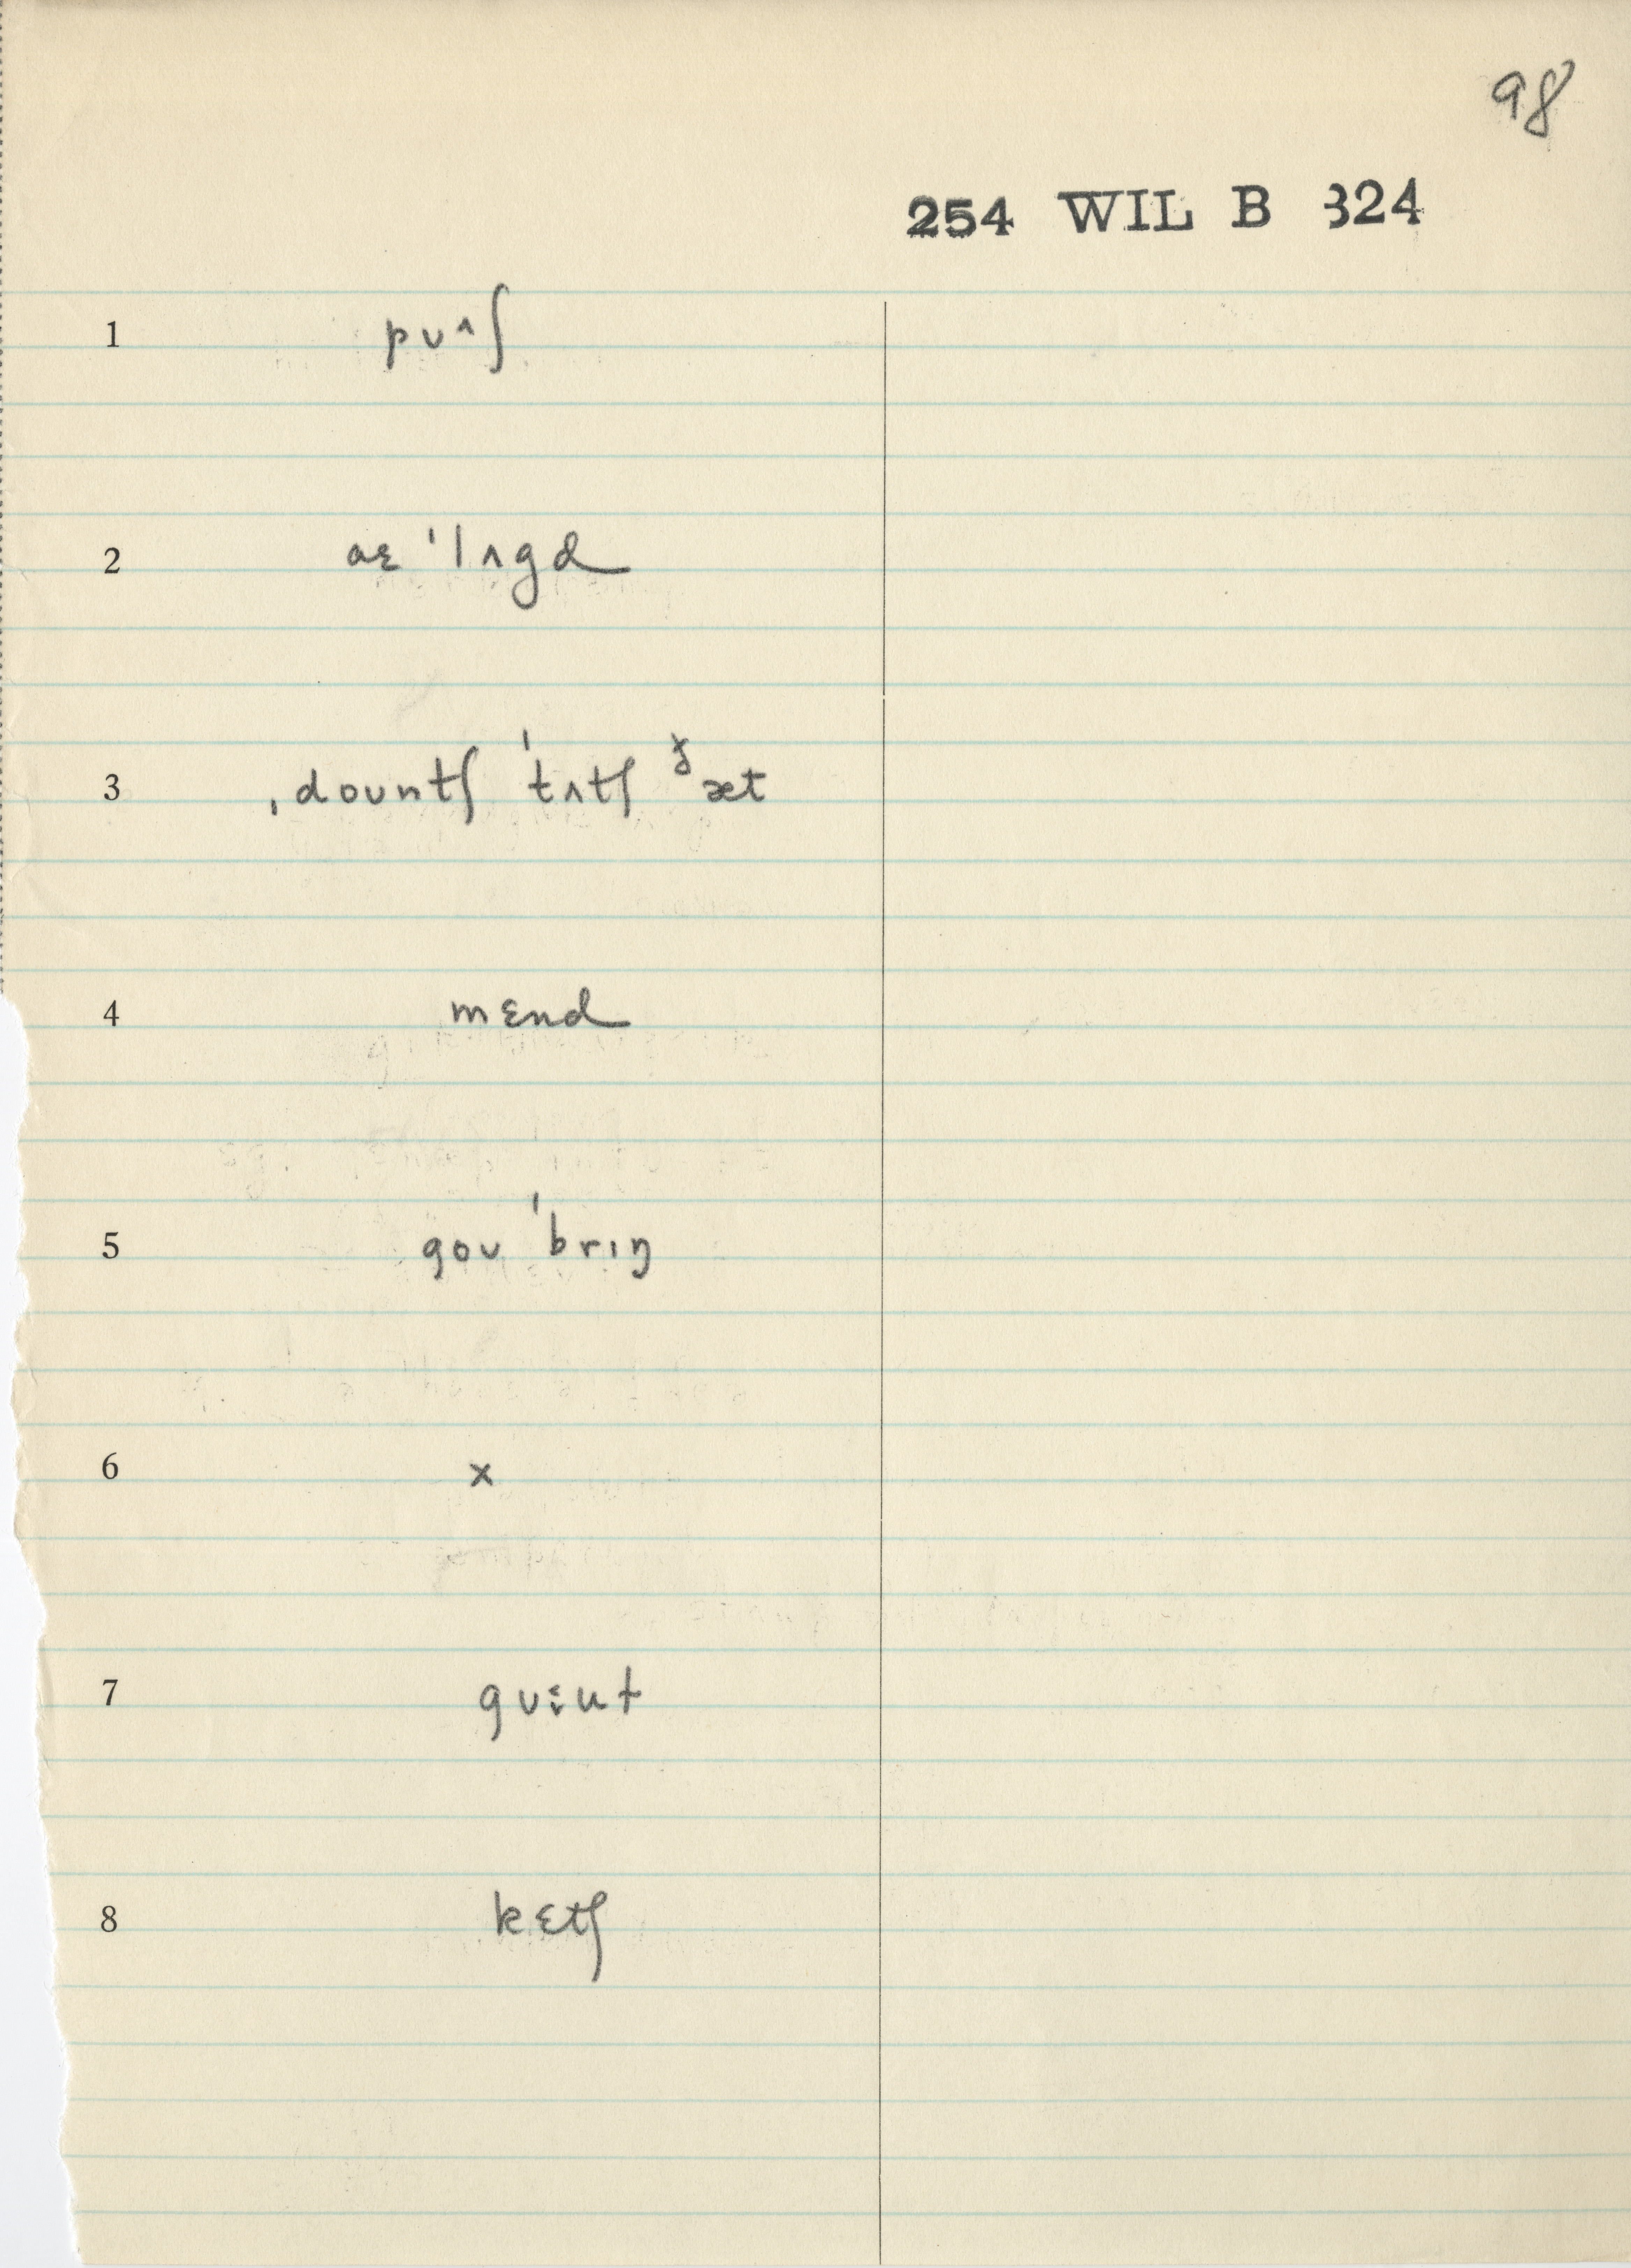 98
254 WIL B 324
1 pʊᶺʃ
2 aɛ ˈlʌgd
3 ˌdountʃ ˈtʌtʃ ᵹæt
4 mɛnd
5 goʊ ˈbrɪŋ
6 x
7
8 kɛtʃ